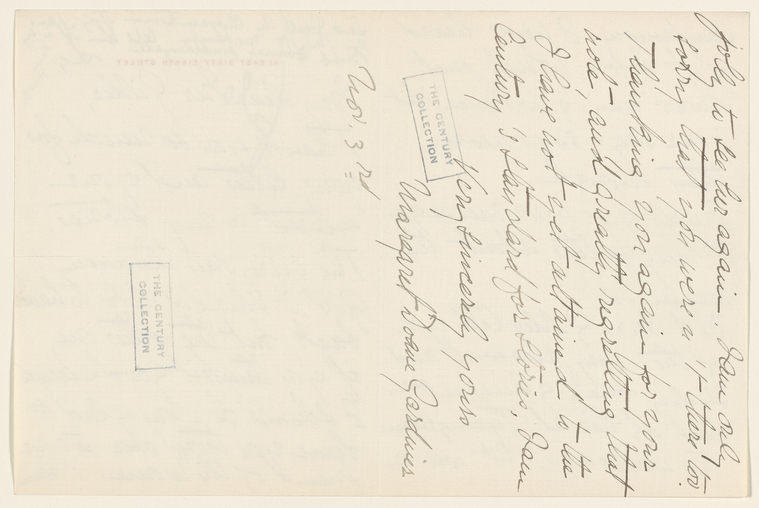 jolly to see her again. I am only
sorry that you weren't there too.
Thanking you again for your
note, and greatly regretting that
I have not yet attained to the
Century's standard for stories, I am
Very sincerely yours
Margaret Doane Gardiner
Nov. 3rd
THE CENTURY
COLLECTION
THE CENTURY
COLLECTION